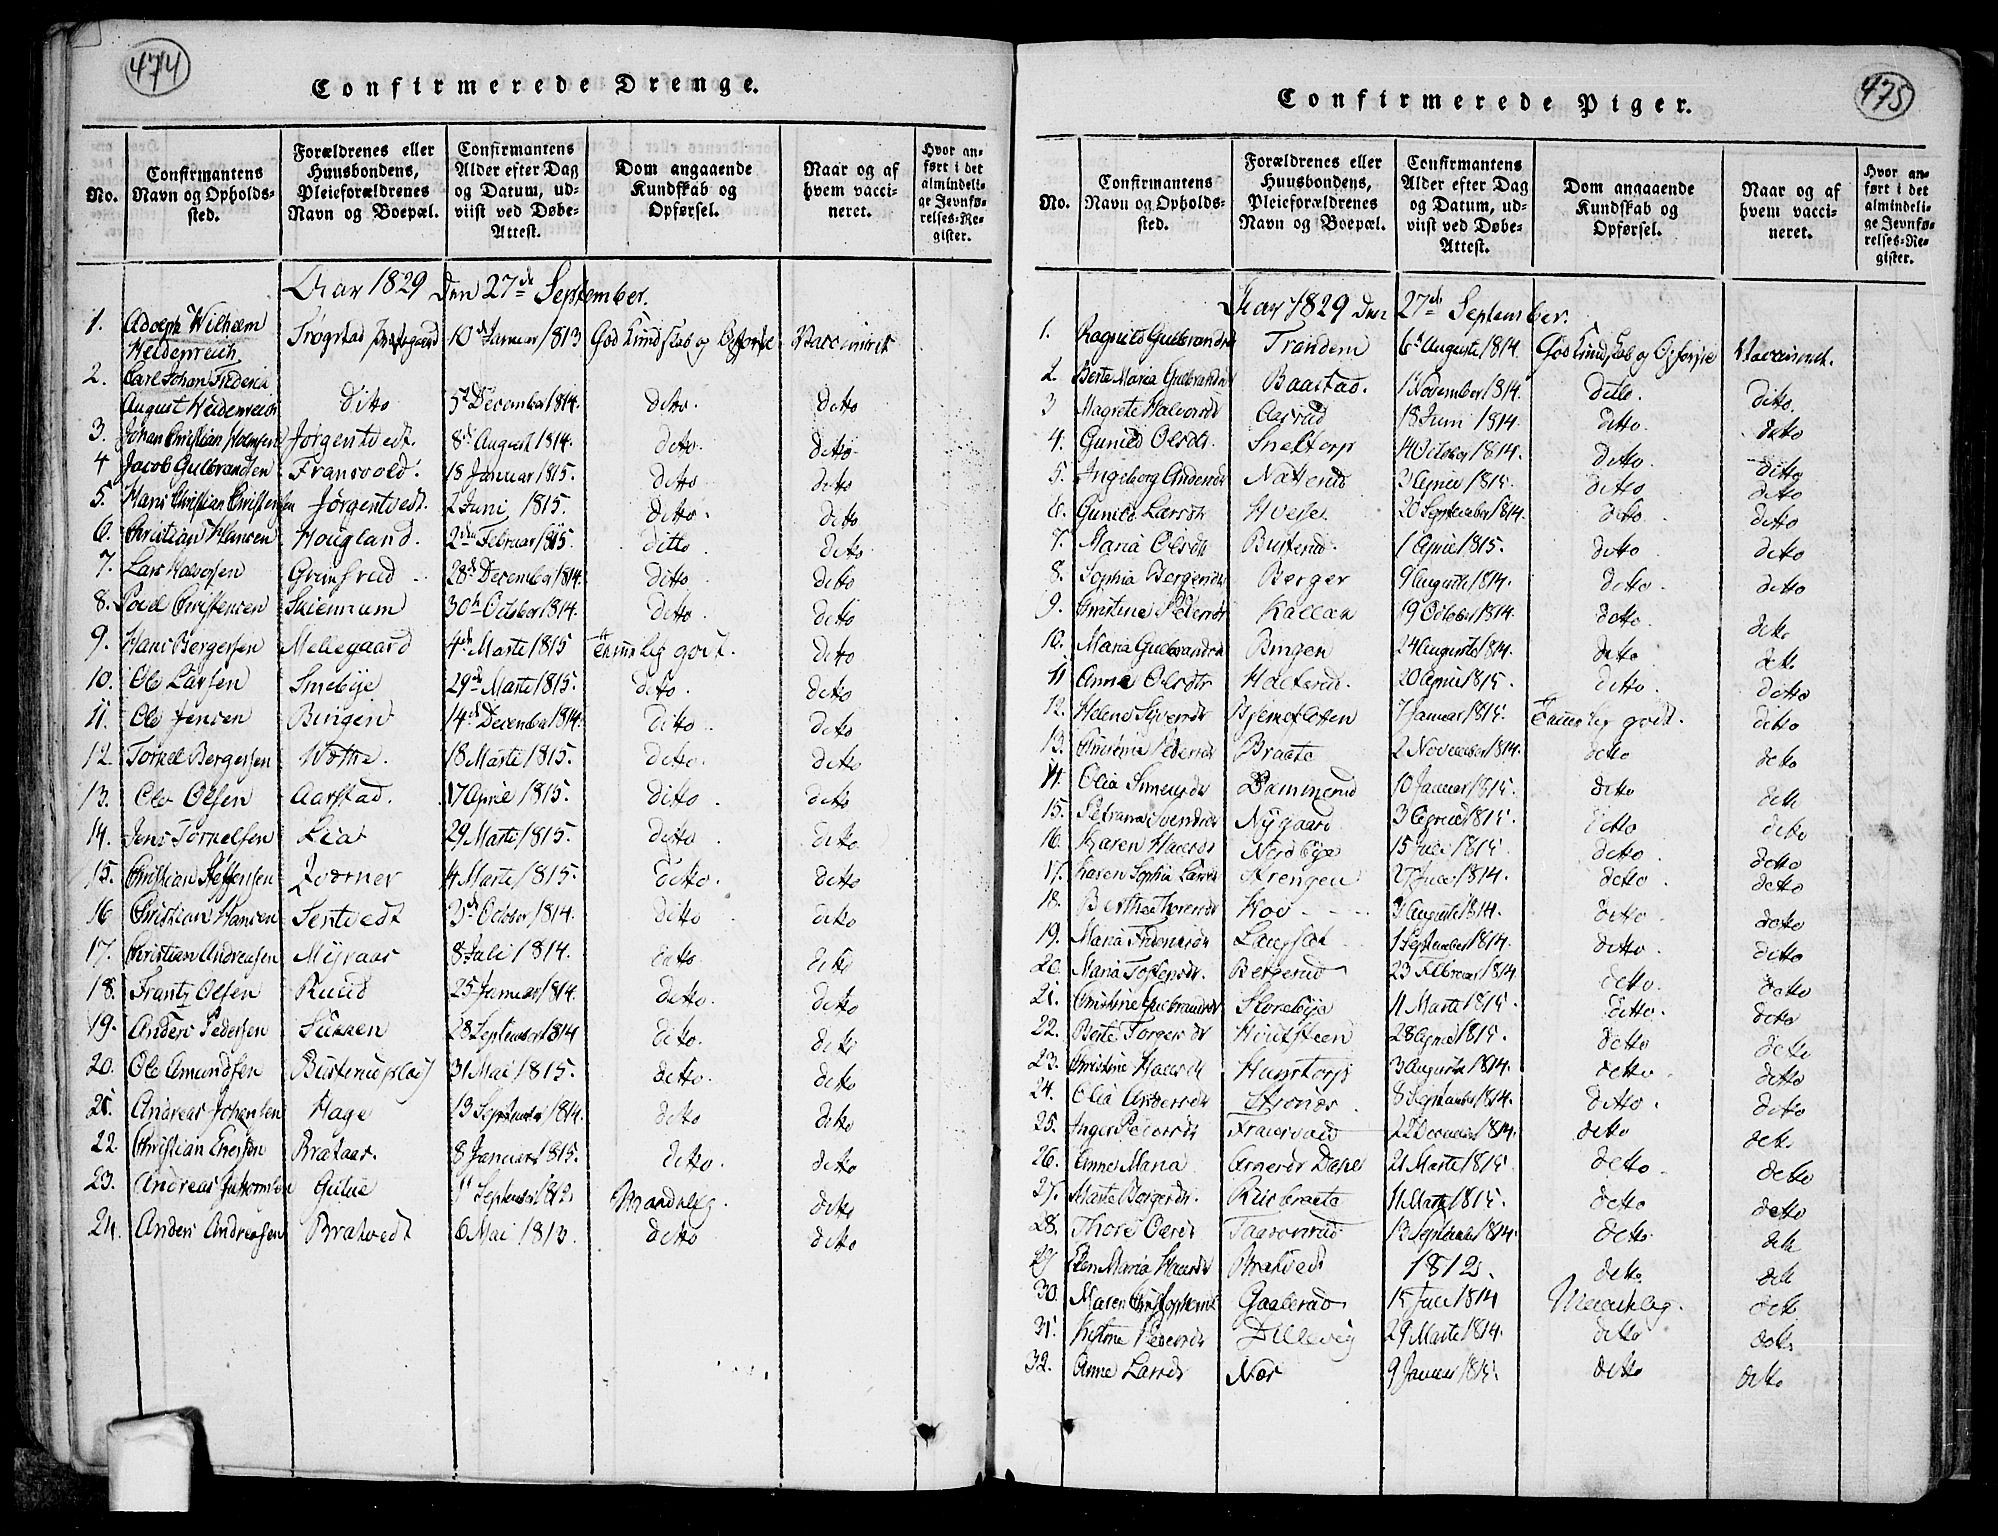 474
Confirmerede Drenge.
No.
Confirmantens Navn og Opholds-sted.
Forældrenes eller Huusbondens, Pleieforældrenes Navn og Boepæl.
Confirmantens Alder efter Dag og Datum, ud-viist ved Døbe-Attest.
Dom angaaende Kundskab og Opførsel.
Naar og af hvem vacci-neret.
Hvor an-ført i det almindeli-ge Jevnfø-relses-Re-gister.
Aar 1829 den 27de September.
1. Adolph Wilhelm
Heidenreich Trøgstad Præstegaard 10de Januar 1813 God Kundskab og Opførsel Vaccineret
2. Carl Johan Frederic
August Heidenreich ditto 5te December 1814. ditto. ditto
3. Johan Christian Hansen Jørgentvedt 8de August 1814. ditto. ditto
4 Jacob Gulbrandsen Fransvold. 18 Januar 1815. ditto ditto
5. Hans Christian Christensen Jørgentvedt. 2 Juni 1815. ditto. ditto
6. Christian Hansen Hougland. 2den Februar 1815. ditto ditto
7. Lars Halvorsen Grimsrud 28de December 1814. ditto ditto
8. Christensen Skienrum 30te October 1814. ditto. ditto
9. Hans Bergersen Mellegaard 4de Marts 1815 Temmelig godt. ditto
10. Ole Larsen Smebye 29de Marts 1815. ditto. ditto
11. Ole Jensen Bingen 14de December 1814. ditto ditto
12. Torkel Bergersen 18 Marts 1815. ditto. ditto
13. Ole Olsen Aarstad. 17 April 1815. ditto ditto
14. Jens Torkelsen Lia 29 Marts 1815. ditto ditto
15. Christian Steffensen 4 Marts 1815. ditto. ditto
16 Christian Hansen Sentvedt 3de October 1814. ditto ditto
17. Christian Andreasen Myraas 8 Juli 1814. ditto. ditto
18. Frantz Olsen Ruud 25 Januar 1814. ditto. ditto
19. Anders Pedersen 28 September 1814 ditto. ditto
20. Ole Amundsen 31 Mai 1815. ditto. ditto
21. Andreas Johansen Hage 13 September 1814. ditto ditto
22. Christian Eversen Brataas. 8 Januar 1815. ditto. ditto
23. Andreas September 1812 Maadelig. ditto
24. Anders Andreasen Bratvedt 6 Mai 1813. ditto ditto
475
Confirmerede Piger.
No.
Confirmantens Navn og Opholds-sted.
Forældrenes eller Huusbondens, Pleieforældrenes Navn og Boepæl.
Confirmantens Alder efter Dag og Datum, ud-viist ved Døbe-Attest.
Dom angaaende Kundskab og Opførsel.
Naar og af hvem vacci-neret.
Hvor an-ført i det almindeli-ge Jevnfø-relses-Re-gister.
Aar 1829 den 27de September.
1. Ragnild Gulbrandsdr Trandem 6te Auguste 1814. God Kundskab og Opførsel Vaccineret.
2. Berte Maria Gulbrandsdr Baastad. 1 November 1814. ditto. ditto.
3 Magrete Halvorsdr Aasrud 18 Juni 1814. ditto. ditto
4. Gunild Olsdr. Skeltorp 14 October 1814. ditto. ditto
5. Ingeborg Andersdr Natterud 3 April 1815. ditto ditto
6. Gunild Larsdr 20 September 1814. ditto ditto
7. Maria Olsdr Busterud. 1 April 1815. ditto ditto
8. Sophia Bergersdr Berger 9 Auguste 1814. ditto. ditto
9. Cristine Pedersdr Kallak 19 October 1814. ditto ditto
10. Maria Gulbrandsdr Bingen 24 Auguste 1814. ditto ditto
11 Anne Olsdtr Holterud. 20 April 1815. ditto. ditto
12. Helene Syversdr 7 Januar 1815. Temmelig godt. ditto
13. Pedersdr Braate 2 November 1814. ditto ditto
14. Olia Simensdr Dammerud 10 Januar 1815. ditto ditto
15. Petrana Svendsdr Nygaard 3 April 1815. ditto ditto
16. Karen Nordbye 15 Juli 1814. ditto ditto
17. Karen Sophia Larsdr Strengen 27 Juli 1814. ditto. ditto
18. Berthe Thoresdr 3 Auguste 1814. ditto. ditto
19. Maria Langsæt 1 September 1814. ditto ditto
20. Maria Bergerud 23 Februar 1814 ditto. ditto
21. Christine Gulbrandsdr Storebye 11 Marts 1815. ditto. ditto
22. Berte Torgersdr Houfsteen 28 April 1815. ditto ditto
23. Christine Hanstorp 3 Auguste 1814. ditto. ditto
24. Olia Andersdr 8 September 1814. ditto. ditto
25. Inger Pedersdr 22 December 1814. ditto ditto
26. Anne Maria 21 Marts 1815. ditto. ditto
27. Marte Borgersdr. Rusbraate 11 Marts 1815. ditto ditto
28. Thore Olsdr 13 September 1814. ditto ditto
29 Maria Bratvedt 1812. ditto ditto
30. Maren Christophersdr Gaaserud 15 Juli 1814 Maadelig. ditto
31. Pedersdr Dillevig 29 Marts 1814. ditto ditto
32. Anne Larsdr Nos 9 Januar 1815. ditto ditto